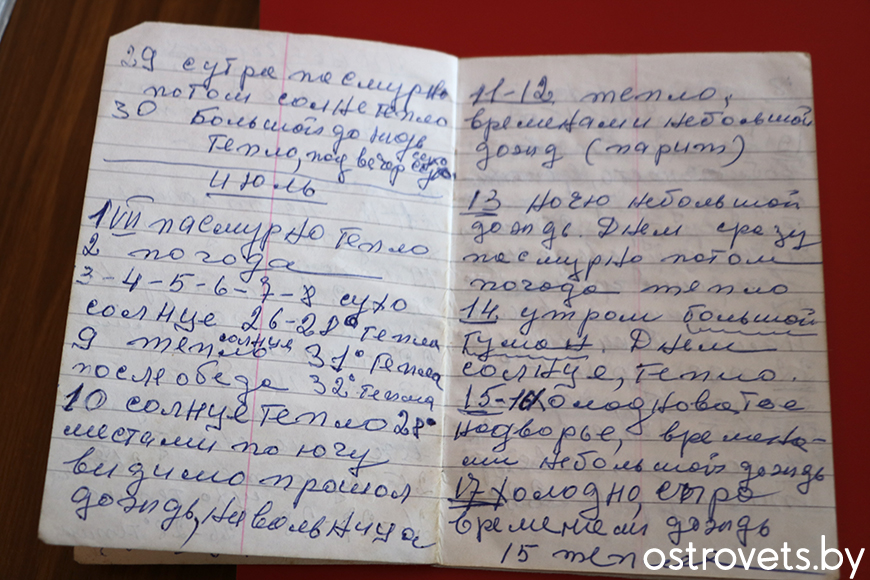 29 сутра пасмурно
потом солнце тепло
30 Большой дождь
Тепло, под вечер сухо
Июль
1 VII пасмурно тепло
2 погода
3-4-5-6-7-8 сухо
солнце 26-28° тепла
9 тепло солнце 31° тепла
после обеда 32° тепла
10 солнце тепло 28°
местами по югу
видимо прошол
дождь,
11-12 тепло,
временами небольшой
дожд (парит)
13 ночю небольшой
дождь. Днем сразу
пасмурно потом
погода тепло
14 утром большой
Туман. Днем
солнце, тепло.
15-16 холодноватое
надворье, времена-
ми небольшой дождь
17 холодно, сыро
временами дождь
15 тепла
ostrovets.by